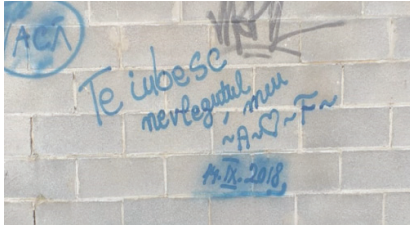 ACA
Te iubesc
nerlegatul meu
~A~♡~F~
14.IX.2018